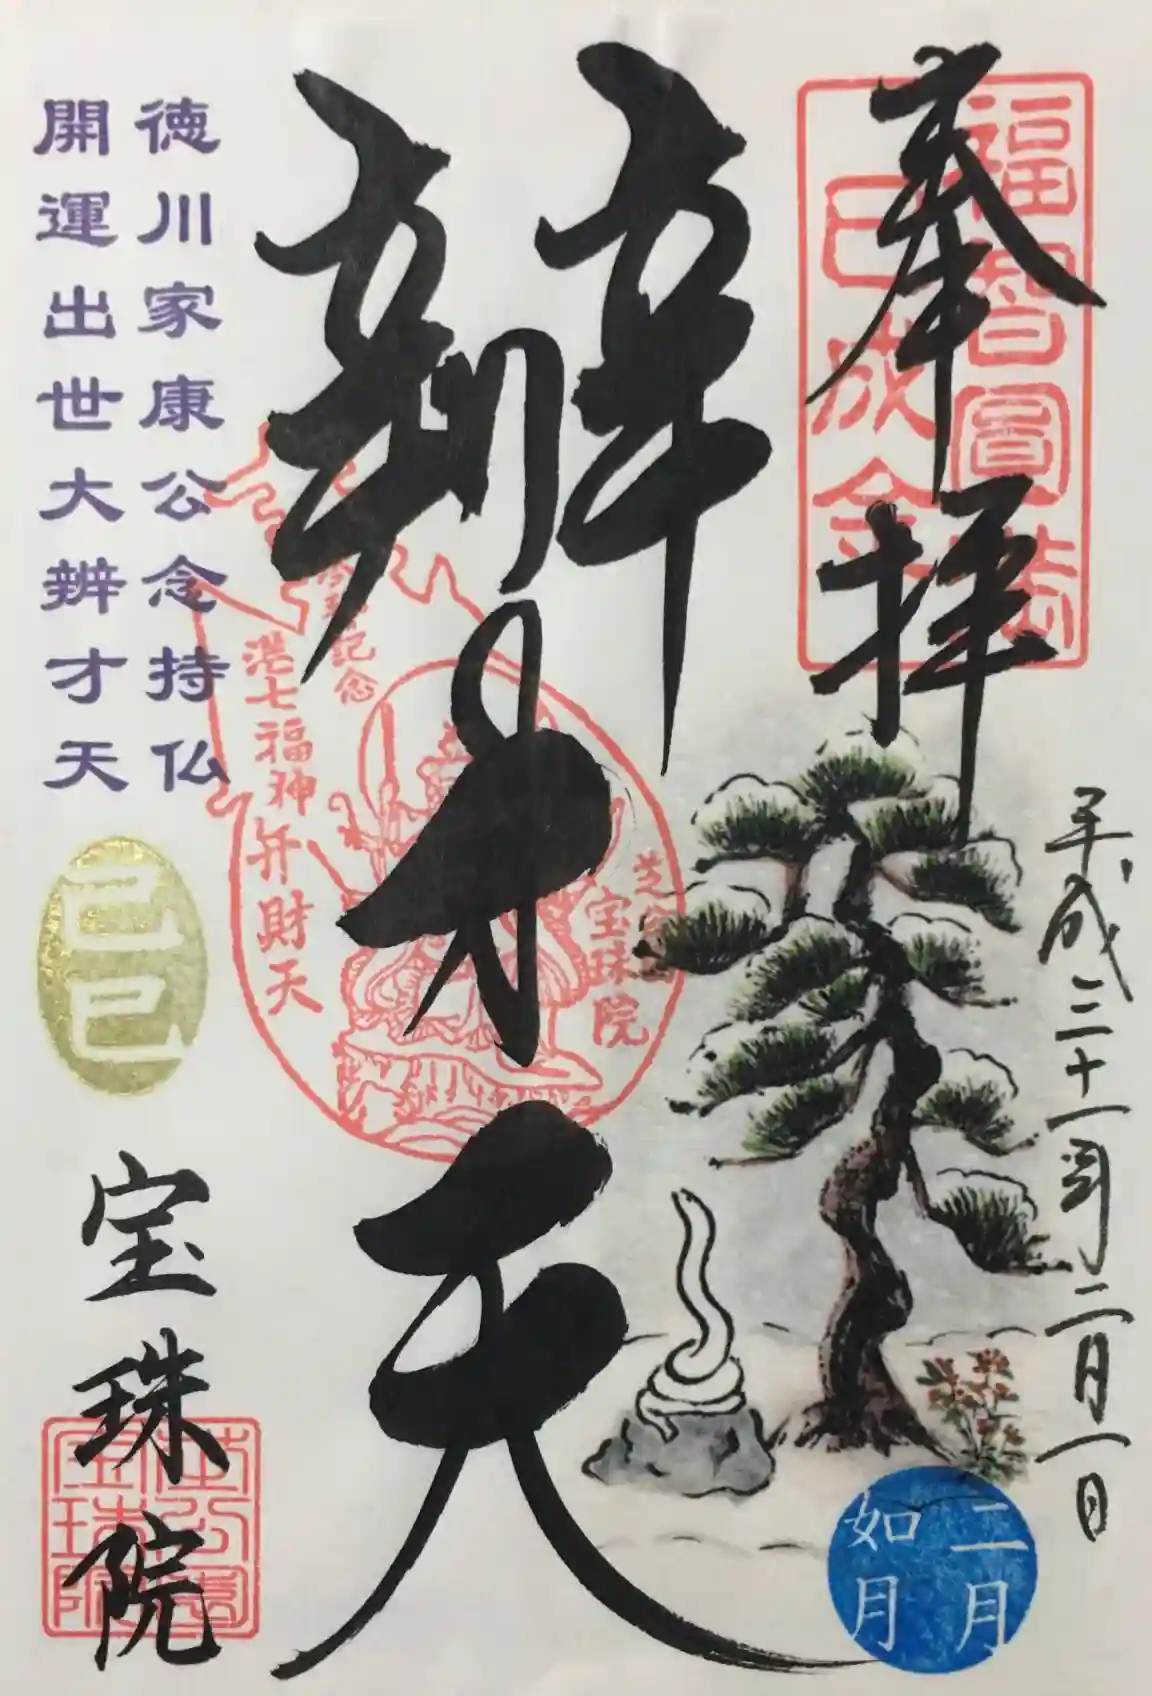 奉拝
福智圓満
巳成金
平成三十一年二月一日
二月
如月
辨才天
参拝記念
港七福神弁財天
芝公園
宝珠院
徳川家康公念持仏
開運出世大辨才天
己巳
宝珠院
芝公園
宝珠院